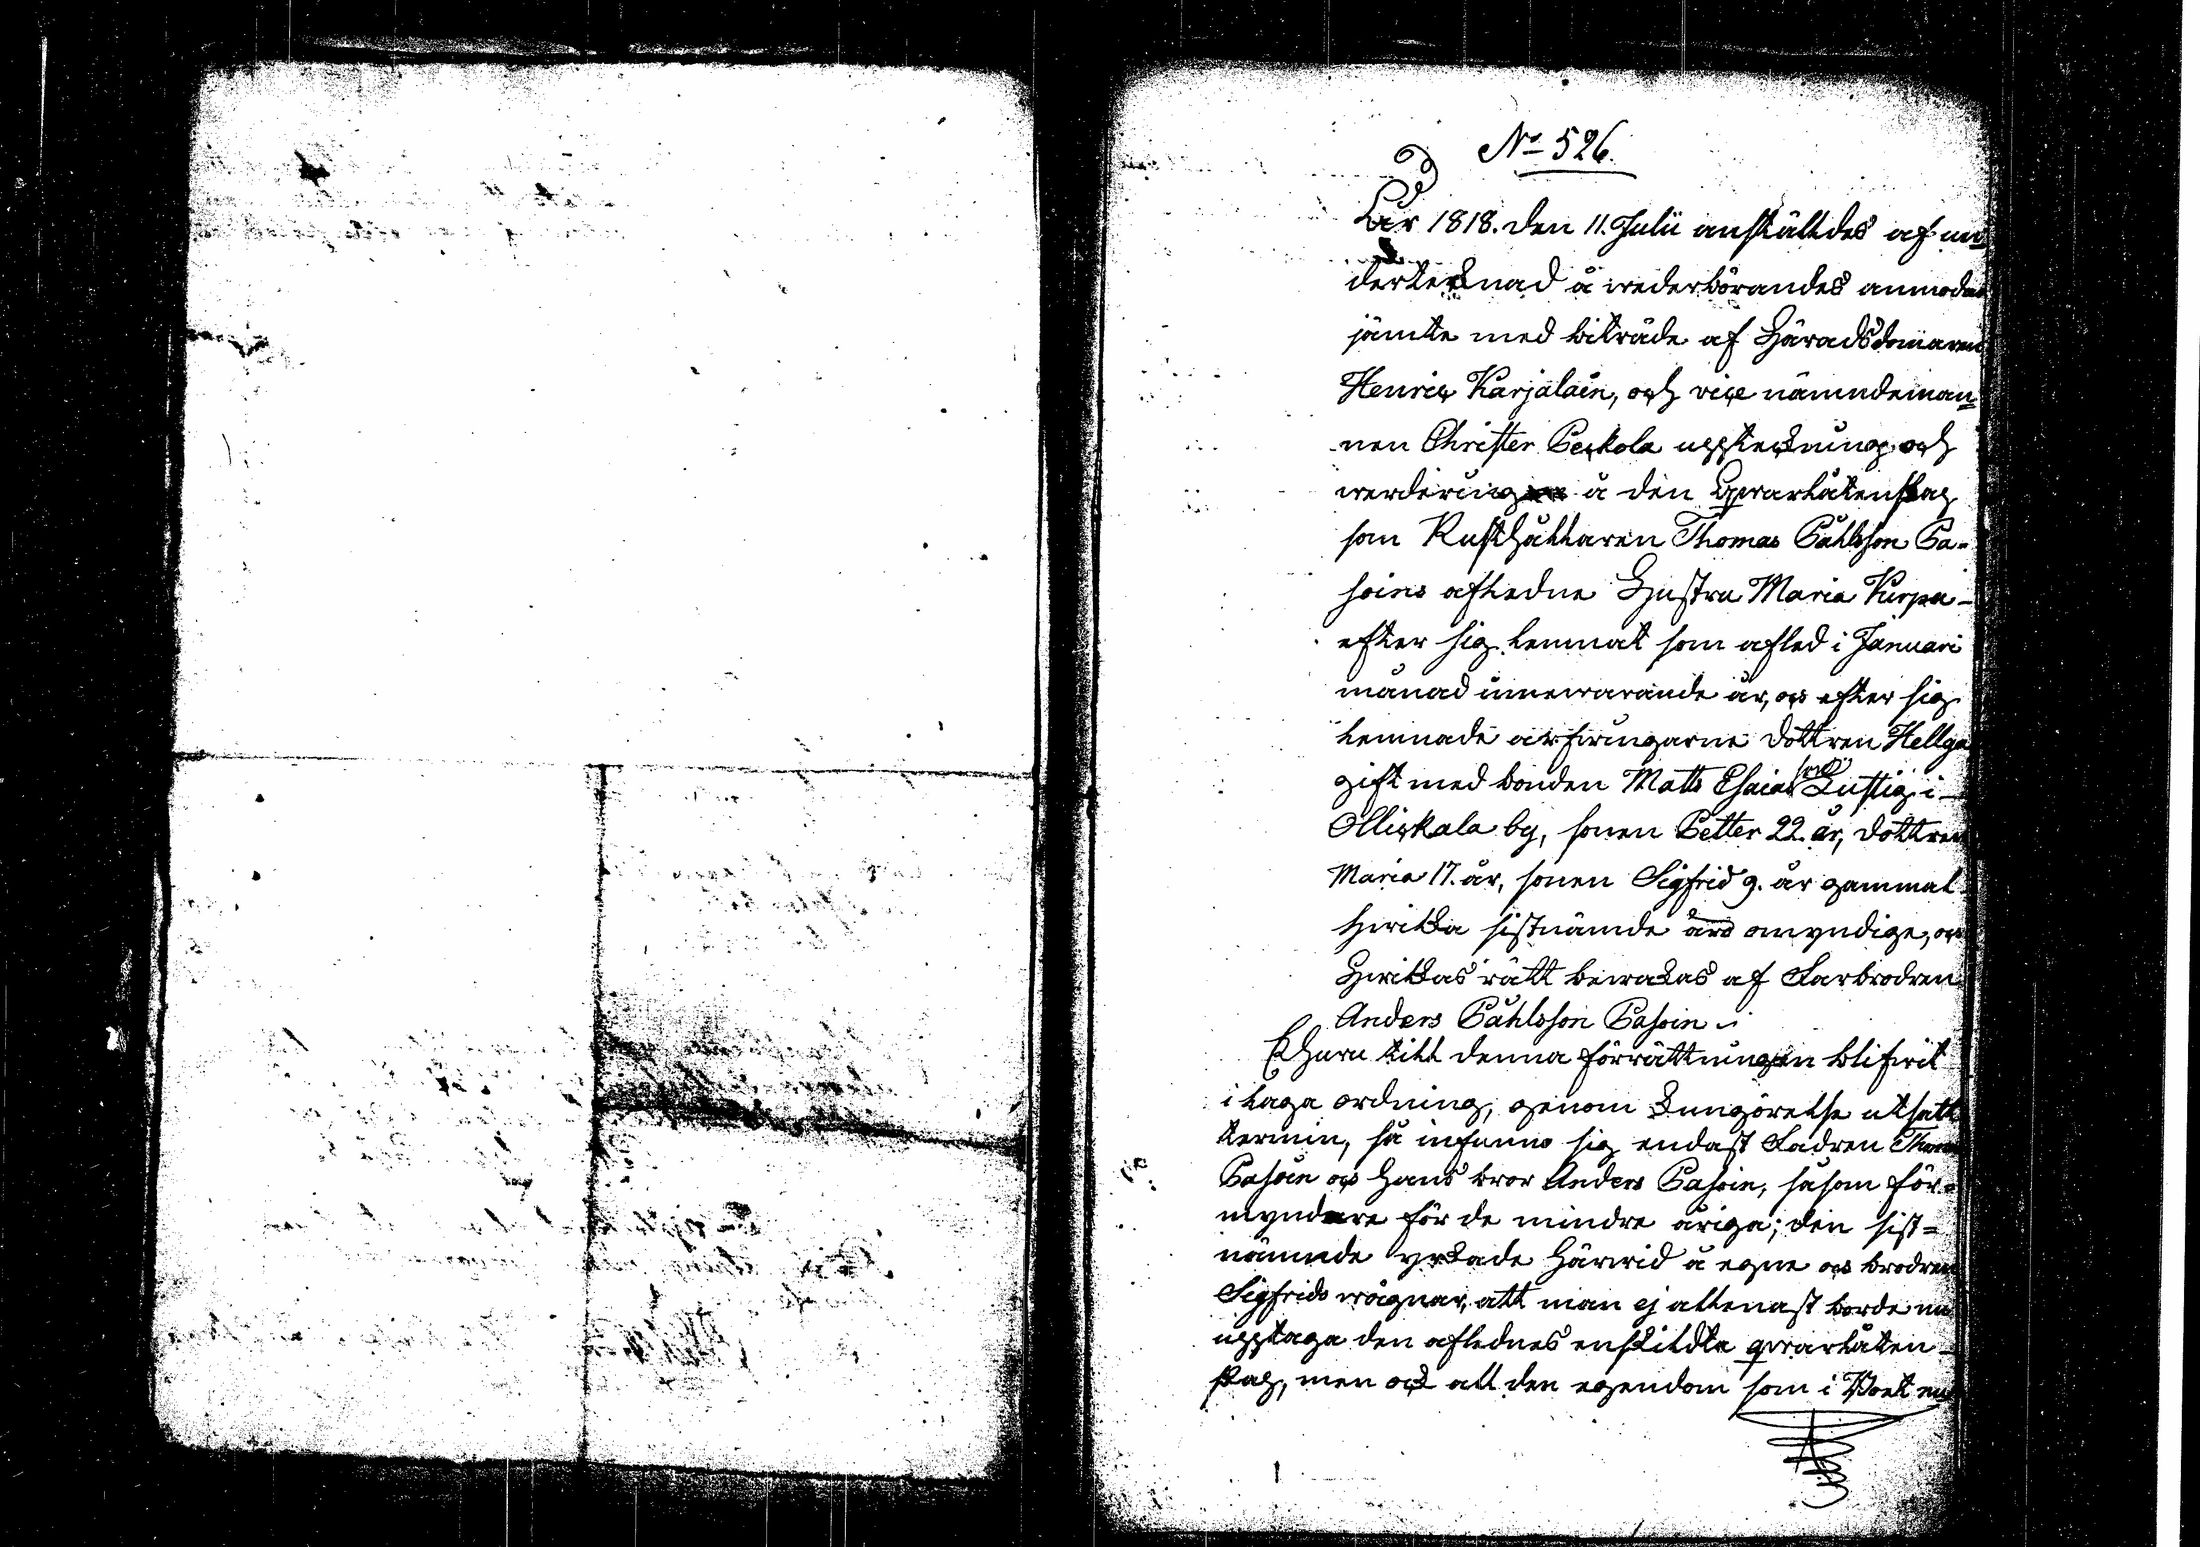 No 526.
År 1818. den 11. Julii anstäldes af un=
dertecknad å wederbörandes anmodan
jämte med biträde af Häradsdomaren
Henric Karjalain, och vice nämndeman=
nen Christer Peckola uppteckning och
werdering å den Qwarlåtenskap
som Rusthållaren Thomas Påhlsson Pa-
soins aflidne Hustru Maria Kurpa-
efter sig lemnat som afled i Januari
månad innewarande år, och efter sig
lemnade arfwingarne dottren Hellga
gift med bonden Matts Esaiasson Lustig i-
Ollickala by, sonen Petter 22. år, dottren
Maria 17. år, sonen Sigfrid 9. år gammal
hwilka sistnämde äro omyndige, och
Hwilkas rätt bewakas af Farbrodren
Anders Påhlsson Pasoin
Ehuru till denna förrättningen blifwit
i laga ordning, genom kungörelse utsatt
termin, så infunno sig endast Fadren Thomas
Pasoin och hans bror Anders Pasoin, såsom för=
myndare för de mindre åriga; den sist=
nämnde yrkade härwid å egne och brodren
Sigfrids wägnar, att man ej allenast borde nu
upptaga den aflednes enskildta qwarlåten-
skap, men ock all den egendom som i Boet